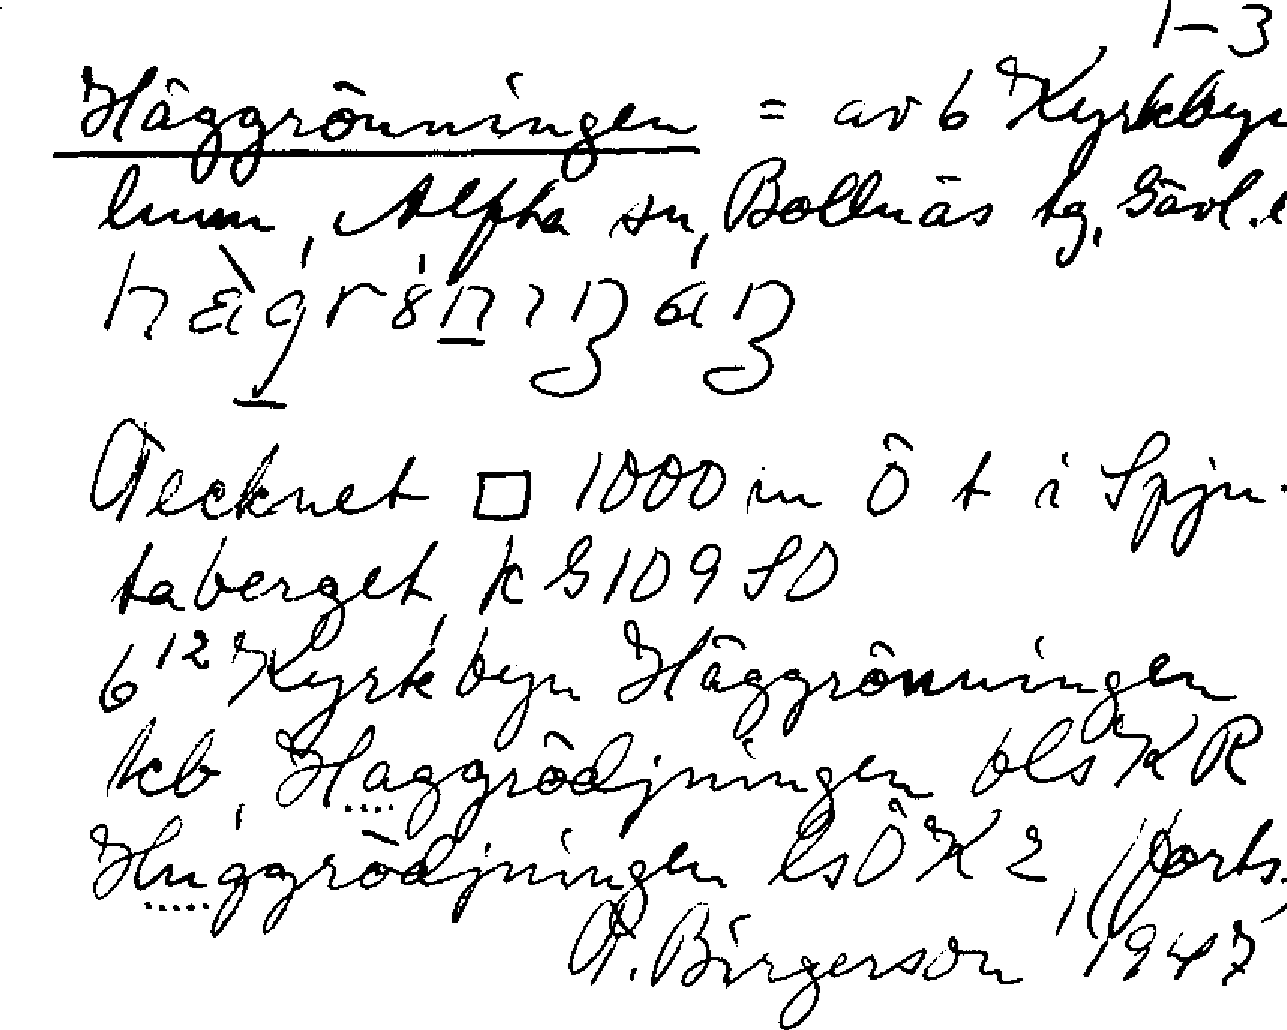 1–3
Häggrönningen = av 6 Kyrkbyn
Alfta sn, Bollnäs tg, Gävl. l
Tecknet □ 1000 m Ö t i Spju-
taberget, k G 109 SO
6¹² Kyrkbyn Häggrönningen
kb, Haggrödjningen bls KR
Huggrödjningen ls ÖK 2, (forts.)
A. Birgerson 1947